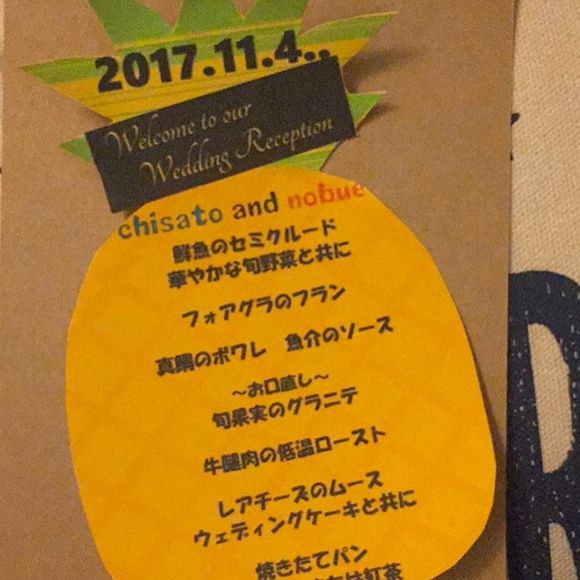 2017.11.4..
Welcome to our
Wedding Reception
chisato and nobue
鮮魚のセミクルード
華やかな旬野菜と共に
フォアグラのフラン
真鯛のポワレ 魚介のソース
～お口直し～
旬果実のグラニテ
牛腿肉の低温ロースト
レアチーズのムース
ウェディングケーキと共に
焼きたてパン
紅茶